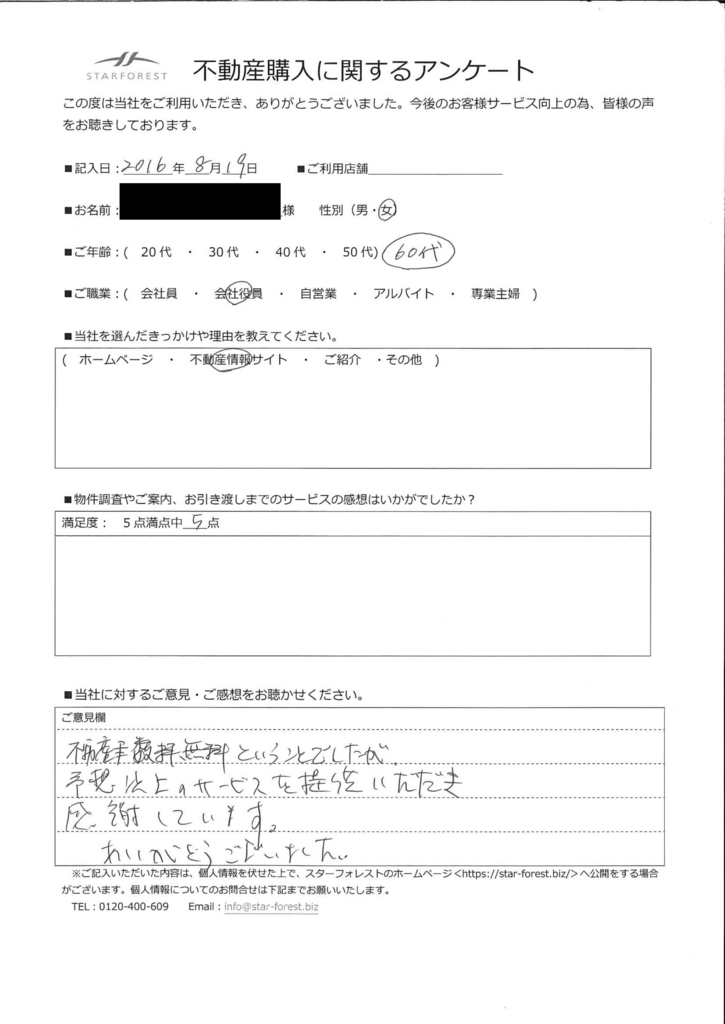 STARFOREST
不動産購入に関するアンケート
この度は当社をご利用いただき、ありがとうございました。今後のお客様サービス向上の為、皆様の声
をお聴きしております。
■記入日:2016年 8月19日 ■ご利用店舗
■お名前: 様 性別(男・女)
■ご年齢:( 20代 ・ 30代 ・ 40代 ・ 50代) 60代
■ご職業:( 会社員 ・ 会社役員 ・ 自営業 ・ アルバイト ・ 専業主婦 )
■当社を選んだきっかけや理由を教えてください。
( ホームページ ・ 不動産情報サイト ・ ご紹介 ・その他 )
■物件調査やご案内、お引き渡しまでのサービスの感想はいかがでしたか?
満足度: 5点満点中 5点
■当社に対するご意見・ご感想をお聴かせください。
ご意見欄
不動産手数料無料ということでしたが、
予想以上のサービスを提供いただき
感謝しています。
ありがとうございました。
※ご記入いただいた内容は、個人情報を伏せた上で、スターフォレストのホームページ<https://star-forest.biz/>へ公開をする場合
がございます。個人情報についてのお問合せは下記までお願いいたします。
TEL:0120-400-609 Email:info@star-forest.biz